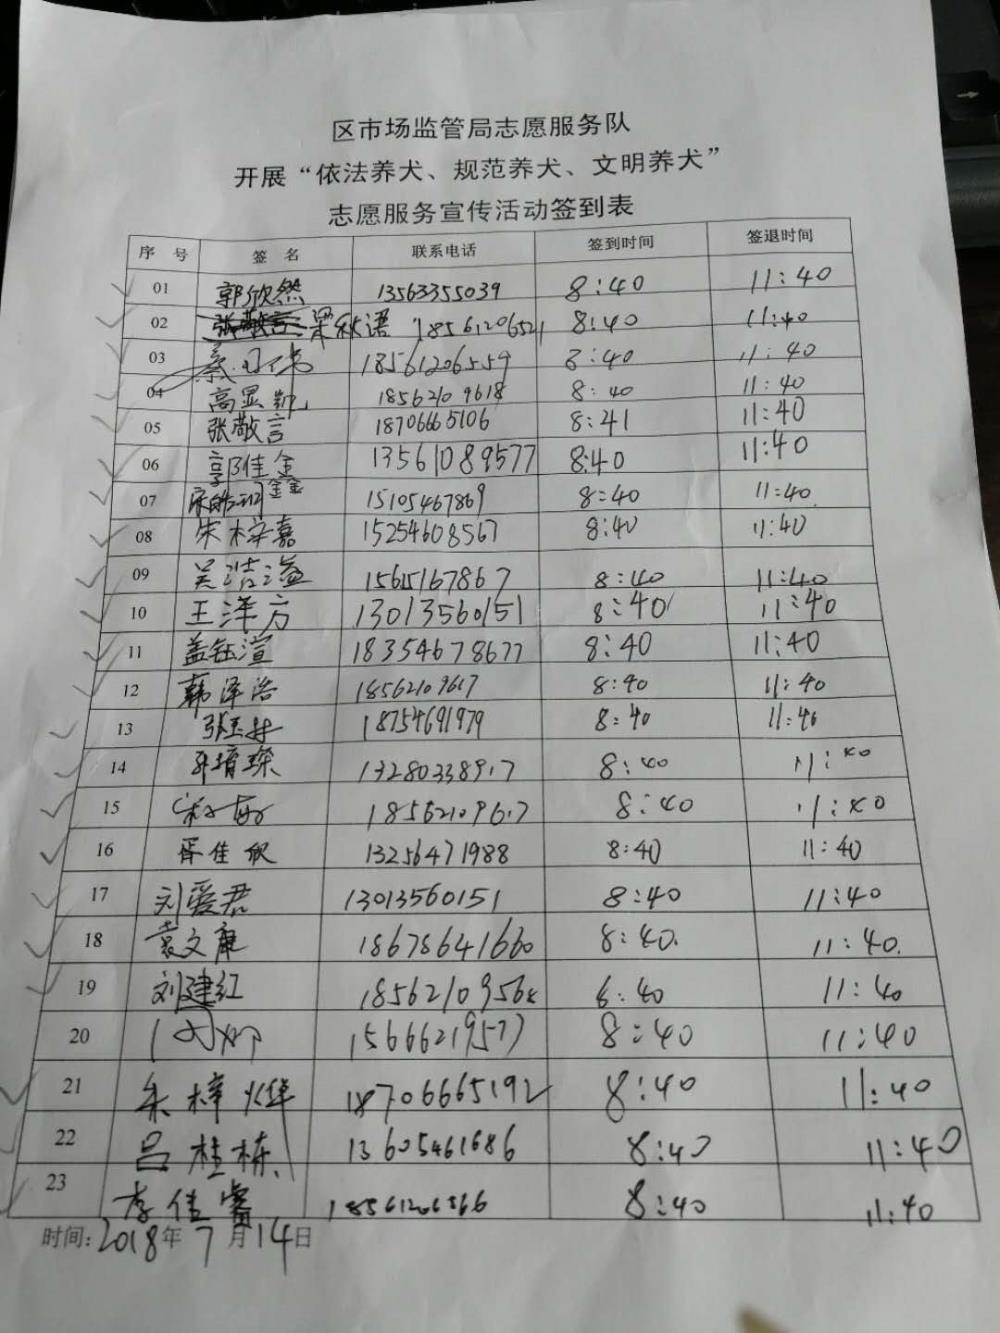 区市场监管局志愿服务队
开展“依法养犬、规范养犬、文明养犬”
志愿服务宣传活动签到表
序 号 签 名 联系电话 签到时间 签退时间
01 郭欣然 13563355039 8:40 11:40
02 梁秋语 18561206521 8:40 11:40
03 18561206559 8:40 11:40
04 高显凯 18562109618 8:40 11:40
05 张敬言 18706665106 8:41 11:40
06 郭佳鑫 13561089577 8:40 11:40
07 15105467869 8:40 11:40
08 朱梓嘉 15254608567 8:40 11:40
09 吴浩溢 15615167867 8:40 11:40
10 王泽方 13013560151 8:40 11:40
11 盖钰渲 18354678677 8:40 11:40
12 韩泽浩 18562109617 8:40 11:40
13 18754691979 8:40 11:40
14 8:40 11:40
15 18562109617 8:40 11:40
16 胥佳欣 13256471988 8:40 11:40
17 刘爱君 13013560151 8:40 11:40
18 袁文康 18678641660 8:40. 11:40.
19 刘建红 8:40 11:40
20 15666219577 8:40 11:40
21 朱梓烨 18706665192 8:40 11:40
22 吕桂栋 13605461686 8:40 11:40
23 李佳睿 18561206566 8:40 11:40
时间:2018年7月14日